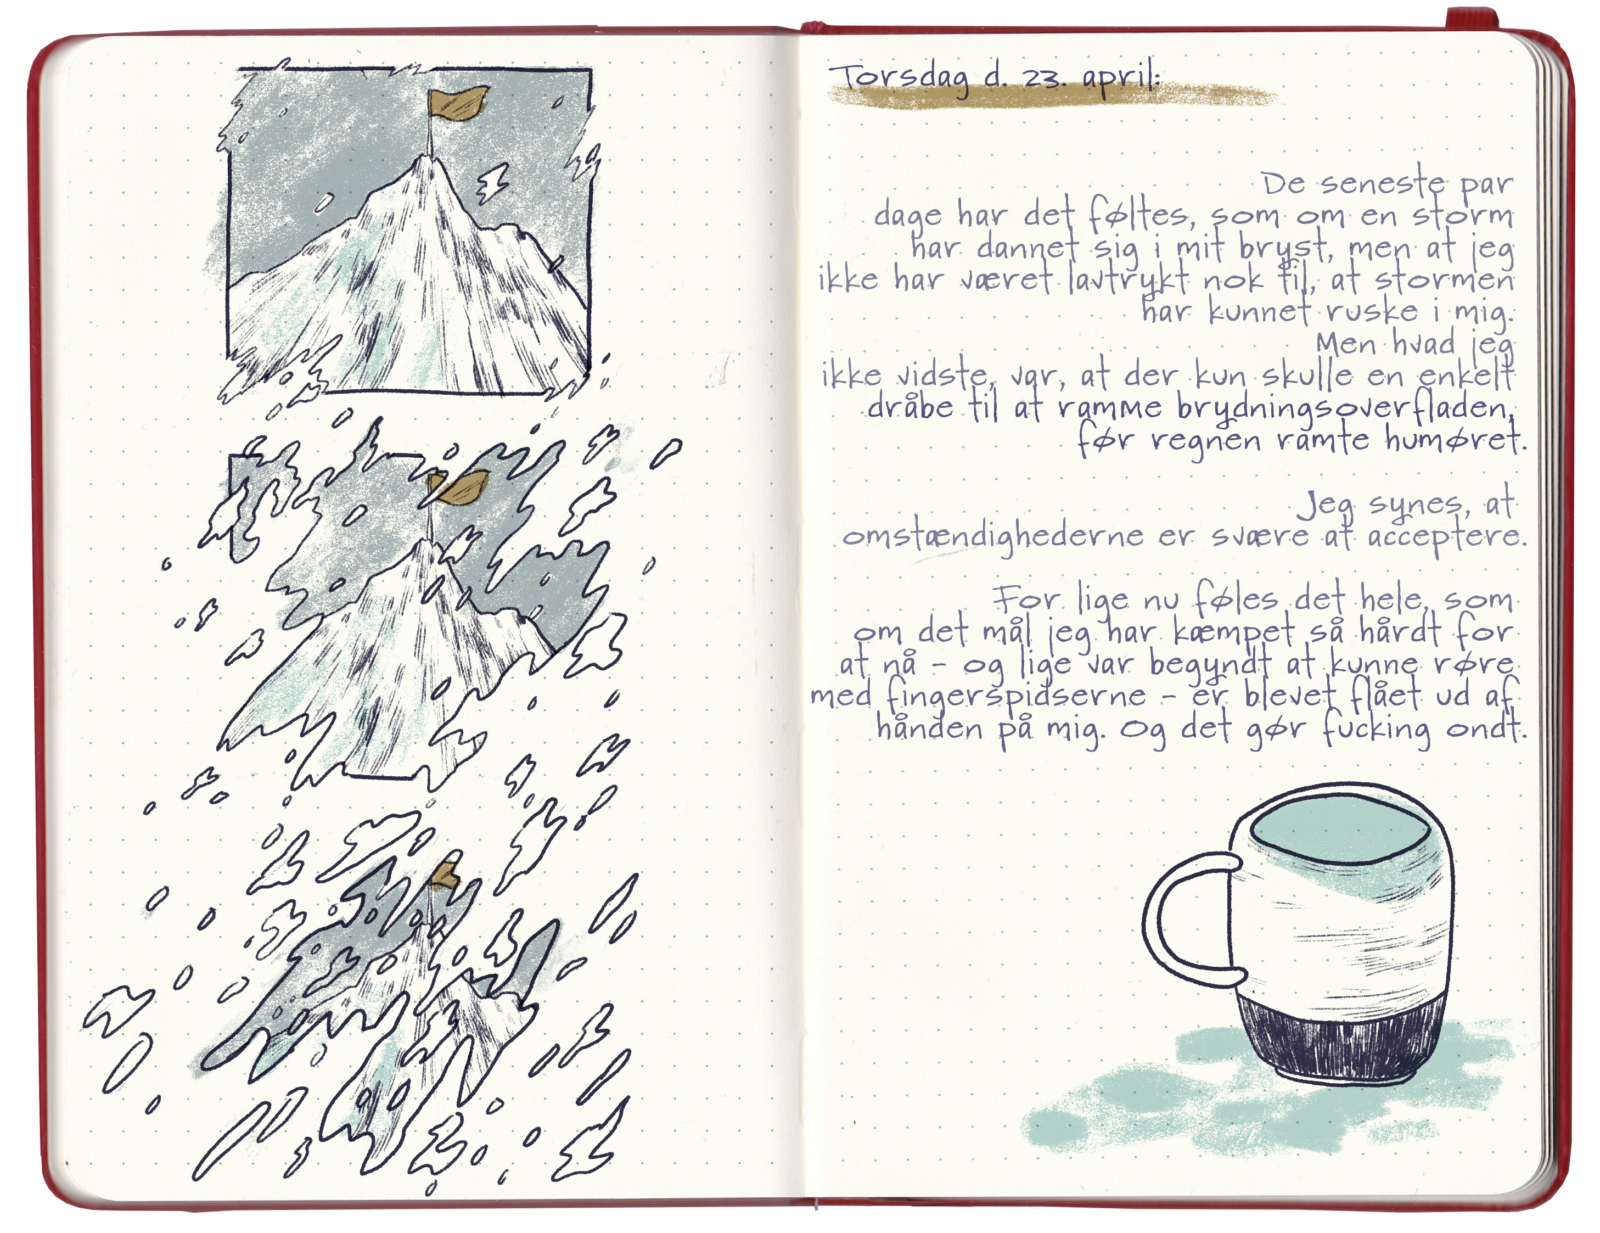 Torsdag d. 23. april:
De seneste par
dage har det føltes, som om en storm
har dannet sig i mit bryst, men at jeg
ikke har været lavtrykt nok til, at stormen
har kunnet ruske i mig.
Men hvad jeg
ikke vidste, var, at der kun skulle en enkelt
dråbe til at ramme brydningsoverfladen,
før regnen ramte humøret.
Jeg synes, at
omstændighederne er svære at acceptere.
For lige nu føles det hele, som
om det mål jeg har kæmpet så hårdt for
at nå - og lige var begyndt at kunne røre
med fingerspidserne - er blevet flået ud af
hånden på mig. Og det gør fucking ondt.